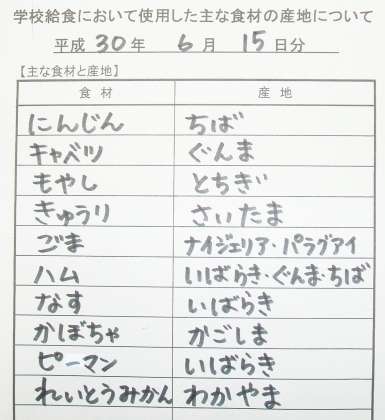 学校給食において使用した主な食材の産地について
平成 30 年 6 月 15 日分
【主な食材と産地】
食材 産地
にんじん ちば
キャベツ ぐんま
もやし とちぎ
きゅうり さいたま
ごま ナイジェリア・パラグアイ
ハム いばらき・ぐんま・ちば
なす いばらき
かぼちゃ かごしま
ピーマン いばらき
れいとうみかん わかやま